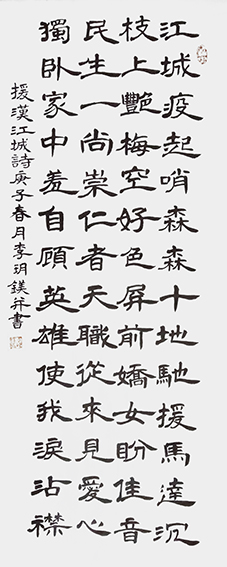 江城疫起哨森森十地馳援馬達沉
枝上艷梅空好色屏前嬌女盼佳音
民生一尚崇仁者天職從來見愛心
獨臥家中羞自顧英雄使我淚沾襟
援漢江城詩庚子春月李玥鎂并書